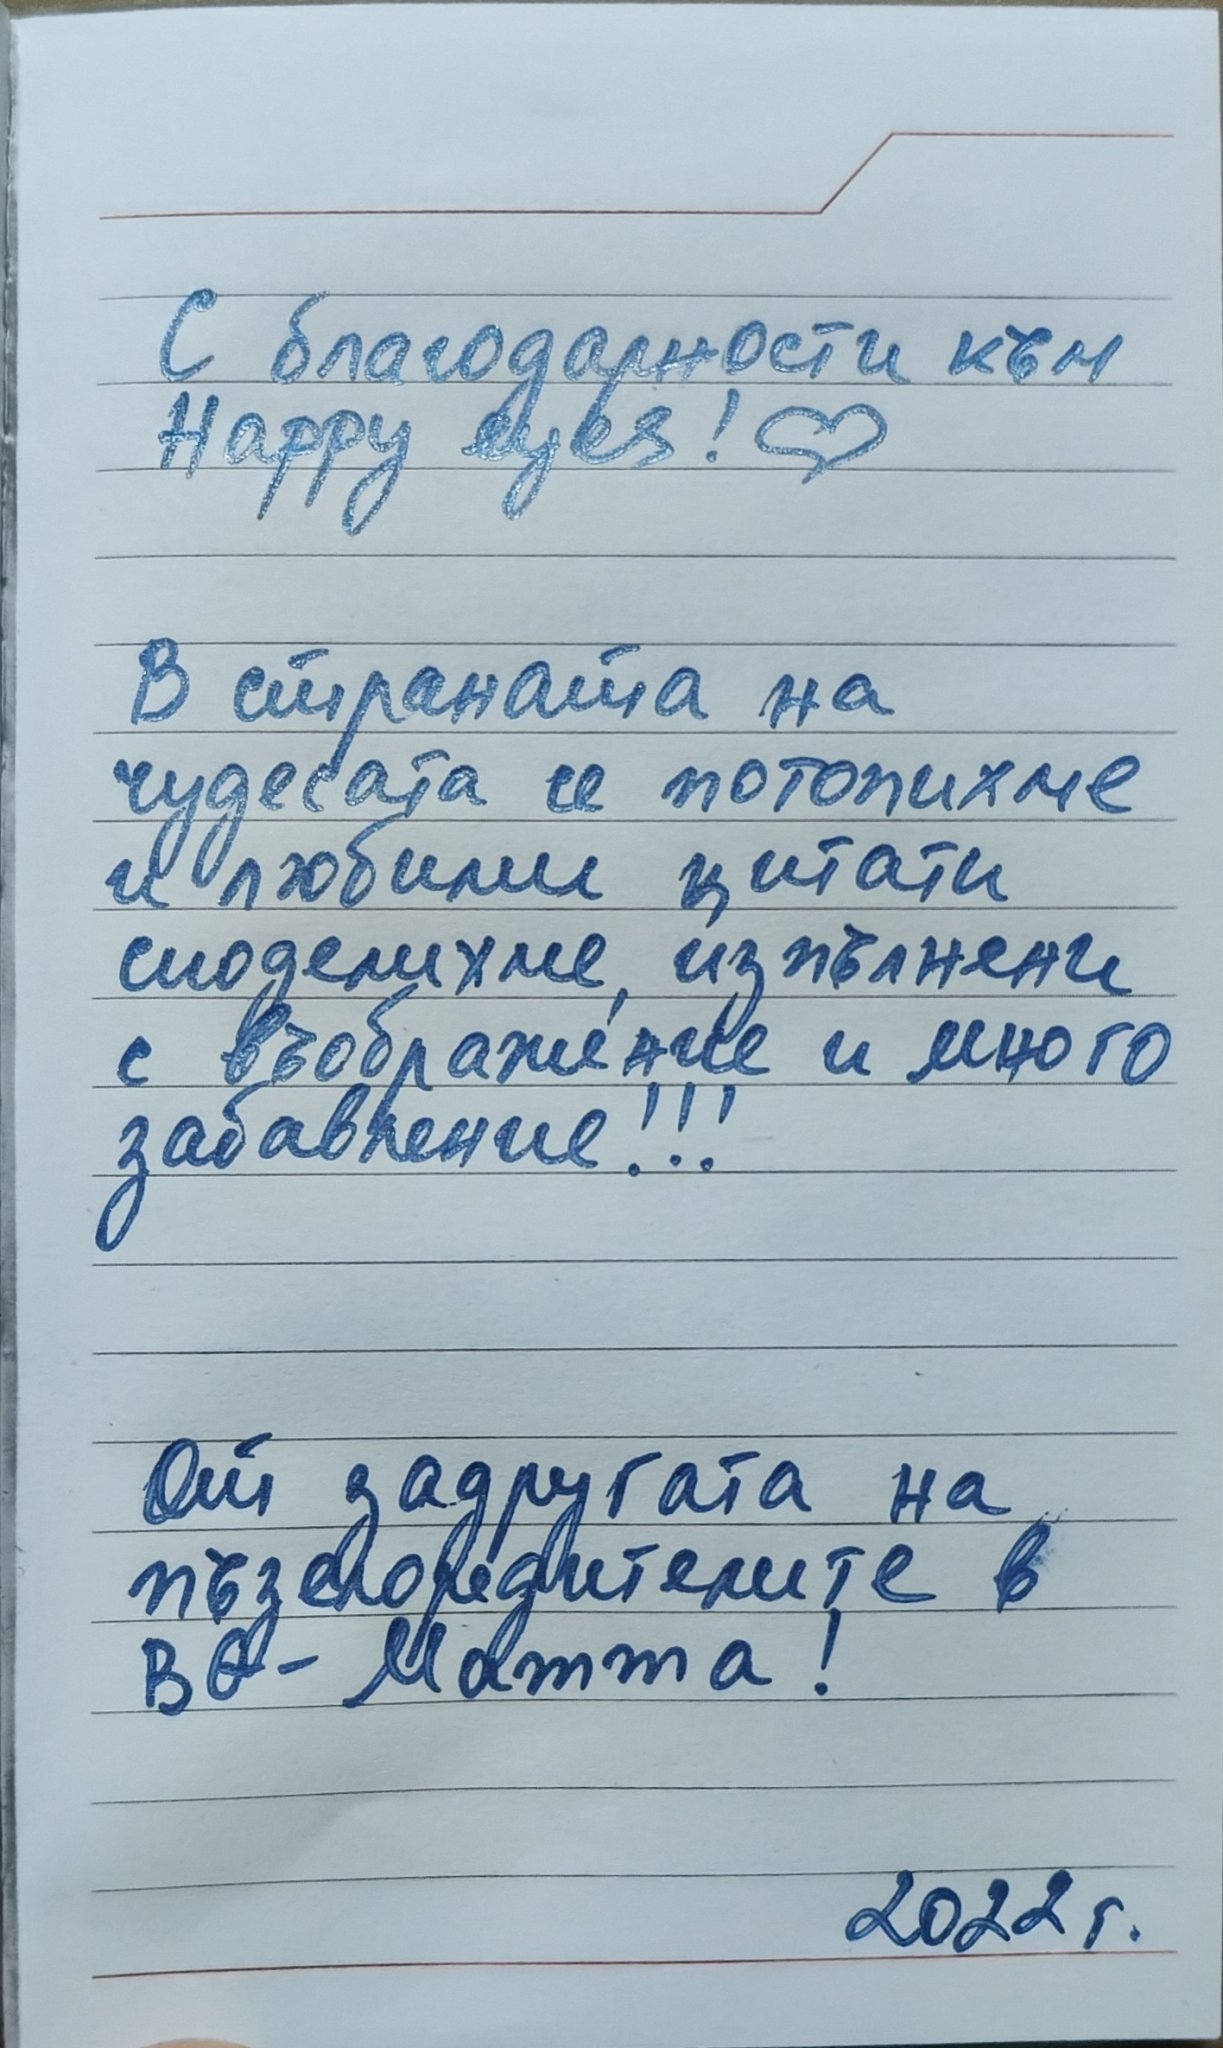 С благодарности към
Happy eyes! ♡
В страната на
чудесата се потопихме
и любими цитати
споделихме, изпълнени
с въображение и много
забавление!!!
От задругата на
пъзелоредителите в
BG-Mamma!
2022 г.